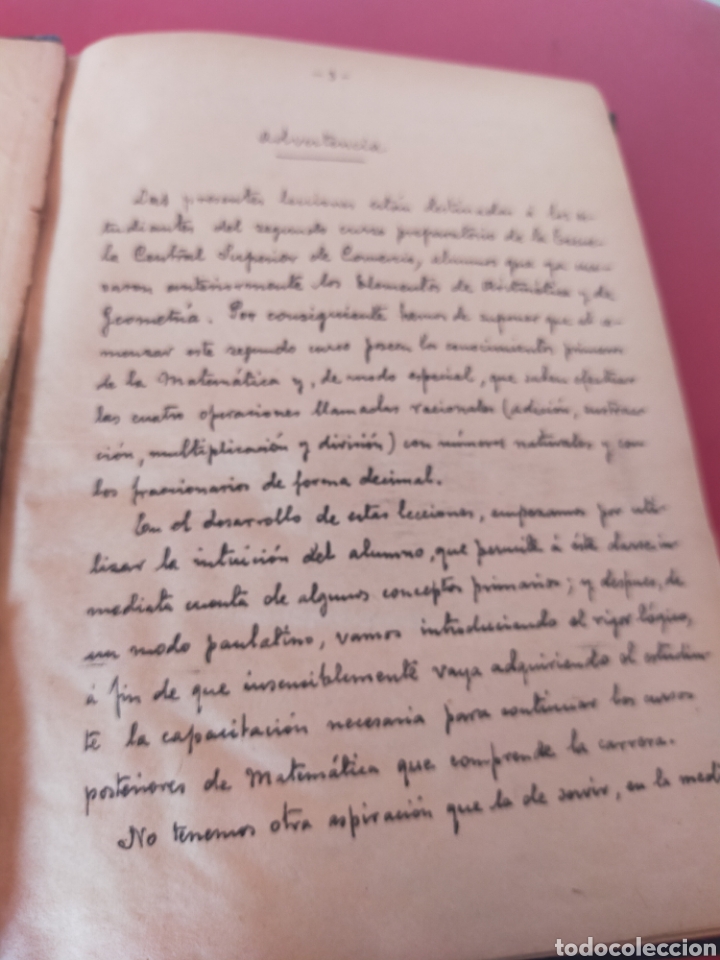 Advertencia.
Las presentes lecciones están destinadas á los es-
tudiantes del segundo curso preparatorio de la Escue-
la Central Superior de Comercio, alumnos que ya
anteriormente los Elementos de Aritmética y de
Geometría. Por consiguiente hemos de suponer que al co-
menzar este segundo curso poseen los conocimientos primeros
de la Matemática y, de modo especial, que saben efectuar
las cuatro operaciones llamadas racionales (adición, sustrac-
ción, multiplicación y división) con números naturales y con
los fraccionarios de forma decimal.
En el desarrollo de estas lecciones, empezamos por uti-
lizar la intuición del alumno, que permite á éste darse in-
mediata cuenta de algunos conceptos primarios; y despues, de
un modo paulatino, vamos introduciendo el rigor lógico,
á fin de que insensiblemente vaya adquiriendo el estudian-
te la capacitación necesaria para continuar los cursos
posteriores de Matemática que comprende la carrera.
No tenemos otra aspiración que la de servir, en la medi
todocoleccion